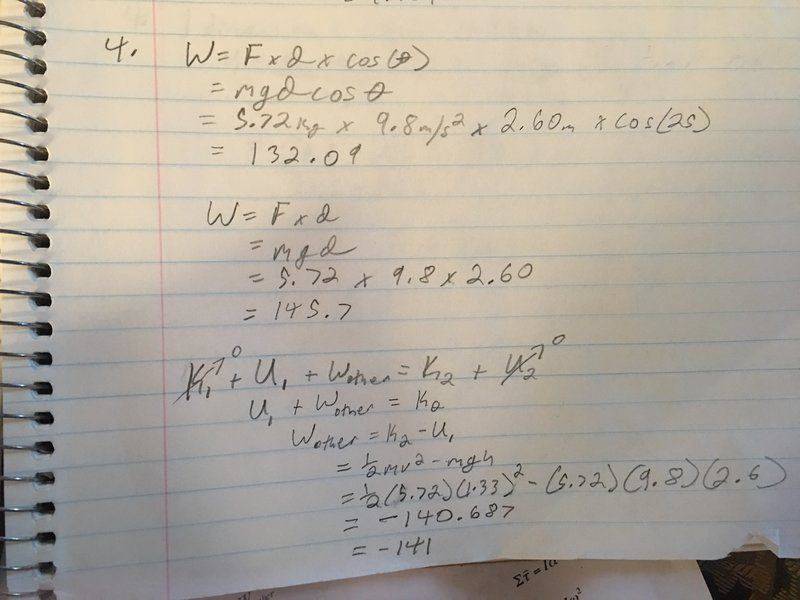 4. W = F x d x cos(θ)
= mgd cos θ
= 5.72kg x 9.8m/s² x 2.60m x cos(25)
= 132.09
W = F x d
= mgd
= 5.72 x 9.8 x 2.60
= 145.7
K₁↗⁰ + U₁ + Wother = K₂ + U₂↗⁰
U₁ + Wother = K₂
Wother = K₂ - U₁
= ½mv² - mgh
= ½(5.72)(1.33)² - (5.72)(9.8)(2.6)
= -140.687
= -141